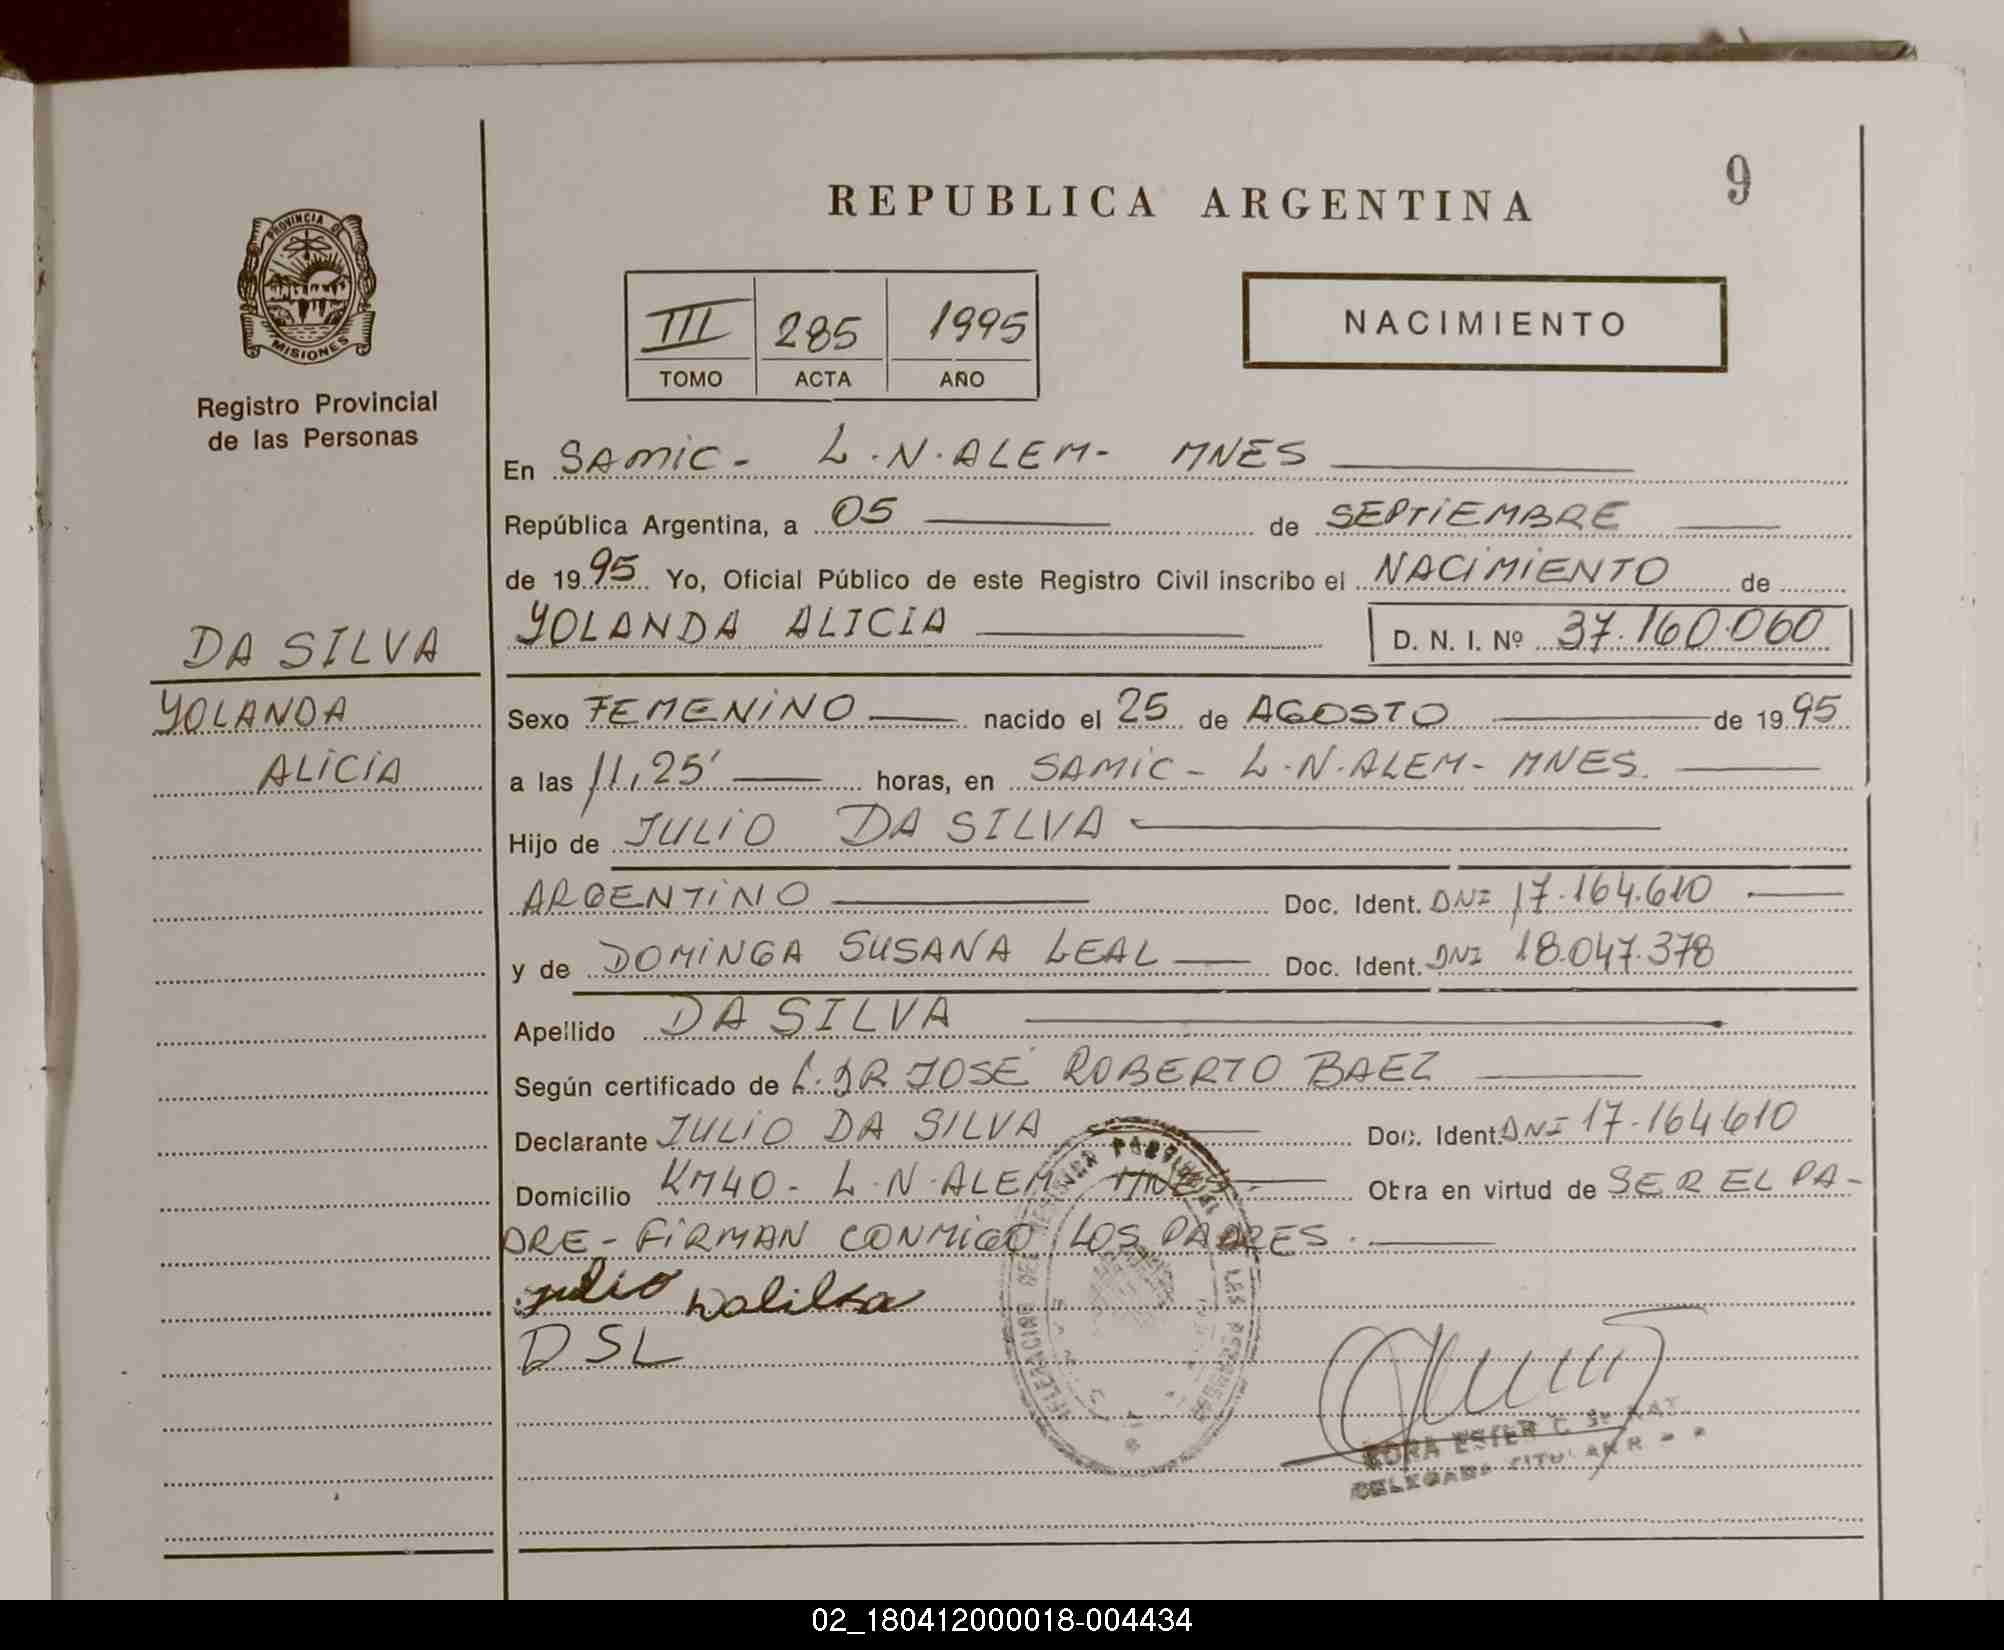 REPUBLICA ARGENTINA
9
PROVINCIA DE
MISIONES
Registro Provincial
de las Personas
III 285 1995
TOMO ACTA AÑO
NACIMIENTO
En SAMIC - L.N.ALEM- MNES
República Argentina, a 05 de SEPTIEMBRE
de 1995 Yo, Oficial Público de este Registro Civil inscribo el NACIMIENTO de
YOLANDA ALICIA D. N. I. Nº 37.160.060
DA SILVA
YOLANDA
ALICIA
Sexo FEMENINO nacido el 25 de AGOSTO de 1995
a las 11,25' horas, en SAMIC - L.N.ALEM- MNES.
Hijo de JULIO DA SILVA
ARGENTINO Doc. Ident. DNI 17.164.610
y de DOMINGA SUSANA LEAL Doc. Ident. DNI 18.047.378
Apellido DA SILVA
Según certificado de L. DR JOSÉ ROBERTO BAEZ
Declarante JULIO DA SILVA Doc. Ident. DNI 17.164610
Domicilio KM40 - L.N.ALEM MNES. Obra en virtud de SER EL PA-
DRE - FIRMAN CONMIGO LOS PADRES.
julio
DSL
ESTER C.
DELEGADA TITULAR
02_180412000018-004434